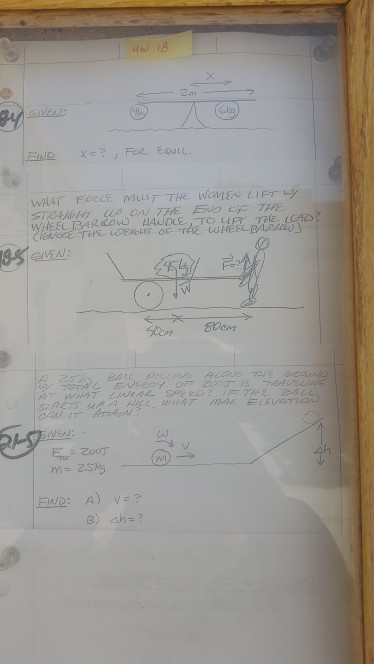 HW 18
X
2m
GIVEN:
4kg
6kg
FIND: X=?, FOR EQUIL.
WHAT FORCE MUST THE WOMEN LIFT W/
STRAIGHT UP ON THE END OF THE
WHEEL BARROW HANDLE, TO LIFT THE LOAD?
(IGNORE THE WEIGHT OF THE WHEEL BARROW)
18-5
GIVEN:
45kg
F=?
W
40cm
80cm
A 2.5kg BALL ROLLING ALONG THE GROUND
W/ TOTAL ENERGY OF 200J IS TRAVELING
AT WHAT LINEAR SPEED? IF THE BALL
STARTS UP A HILL WHAT MAX ELEVATION
CAN IT ATTAIN?
21-5
GIVEN:
ω
E = 200J
V
m = 2.5kg
m
Δh
FIND: A) V=?
B) Δh=?